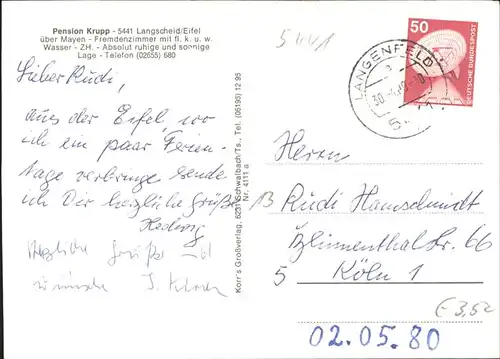 Pension Krupp - 5441 Langscheid/Eifel
über Mayen - Fremdenzimmer mit fl. k. u. w.
Wasser - ZH. - Absolut ruhige und sonnige
Lage - Telefon (02655) 680
Lieber Rudi,
aus der Eifel, wo
ich ein paar Ferien-
tage verbringe sende
ich Dir herzliche Grüße
Hedwig
Herzliche Grüße
Korr's Großverlag, 6231 Schwalbach/Ts., Tel. (06195) 12 95
Nr. 4111 a
5441
LANGENFELD
50
DEUTSCHE BUNDESPOST
Herrn
Rudi Hamschmidt
Blumenthalstr. 66
5 Köln 1
€ 3,52
02.05.80